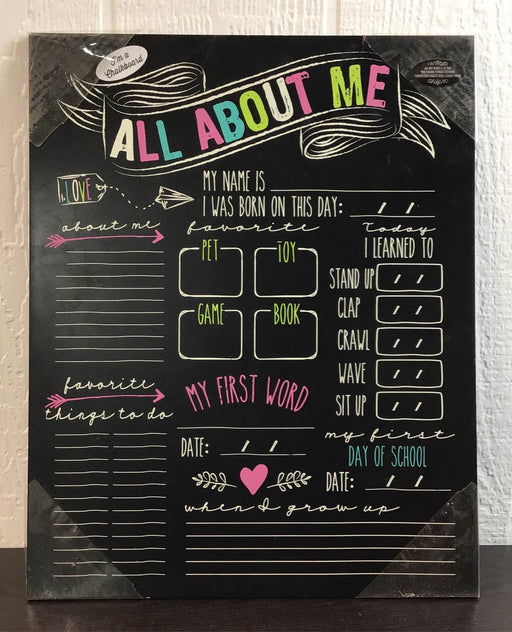 I'm a
Chalkboard
ALL ABOUT ME
I LOVE
MY NAME IS
I WAS BORN ON THIS DAY: / /
about me
favorite
PET
TOY
GAME
BOOK
Today
I LEARNED TO
STAND UP / /
CLAP / /
CRAWL / /
WAVE / /
SIT UP / /
favorite
things to do
MY FIRST WORD
DATE: / /
my first
DAY OF SCHOOL
DATE: / /
when I grow up